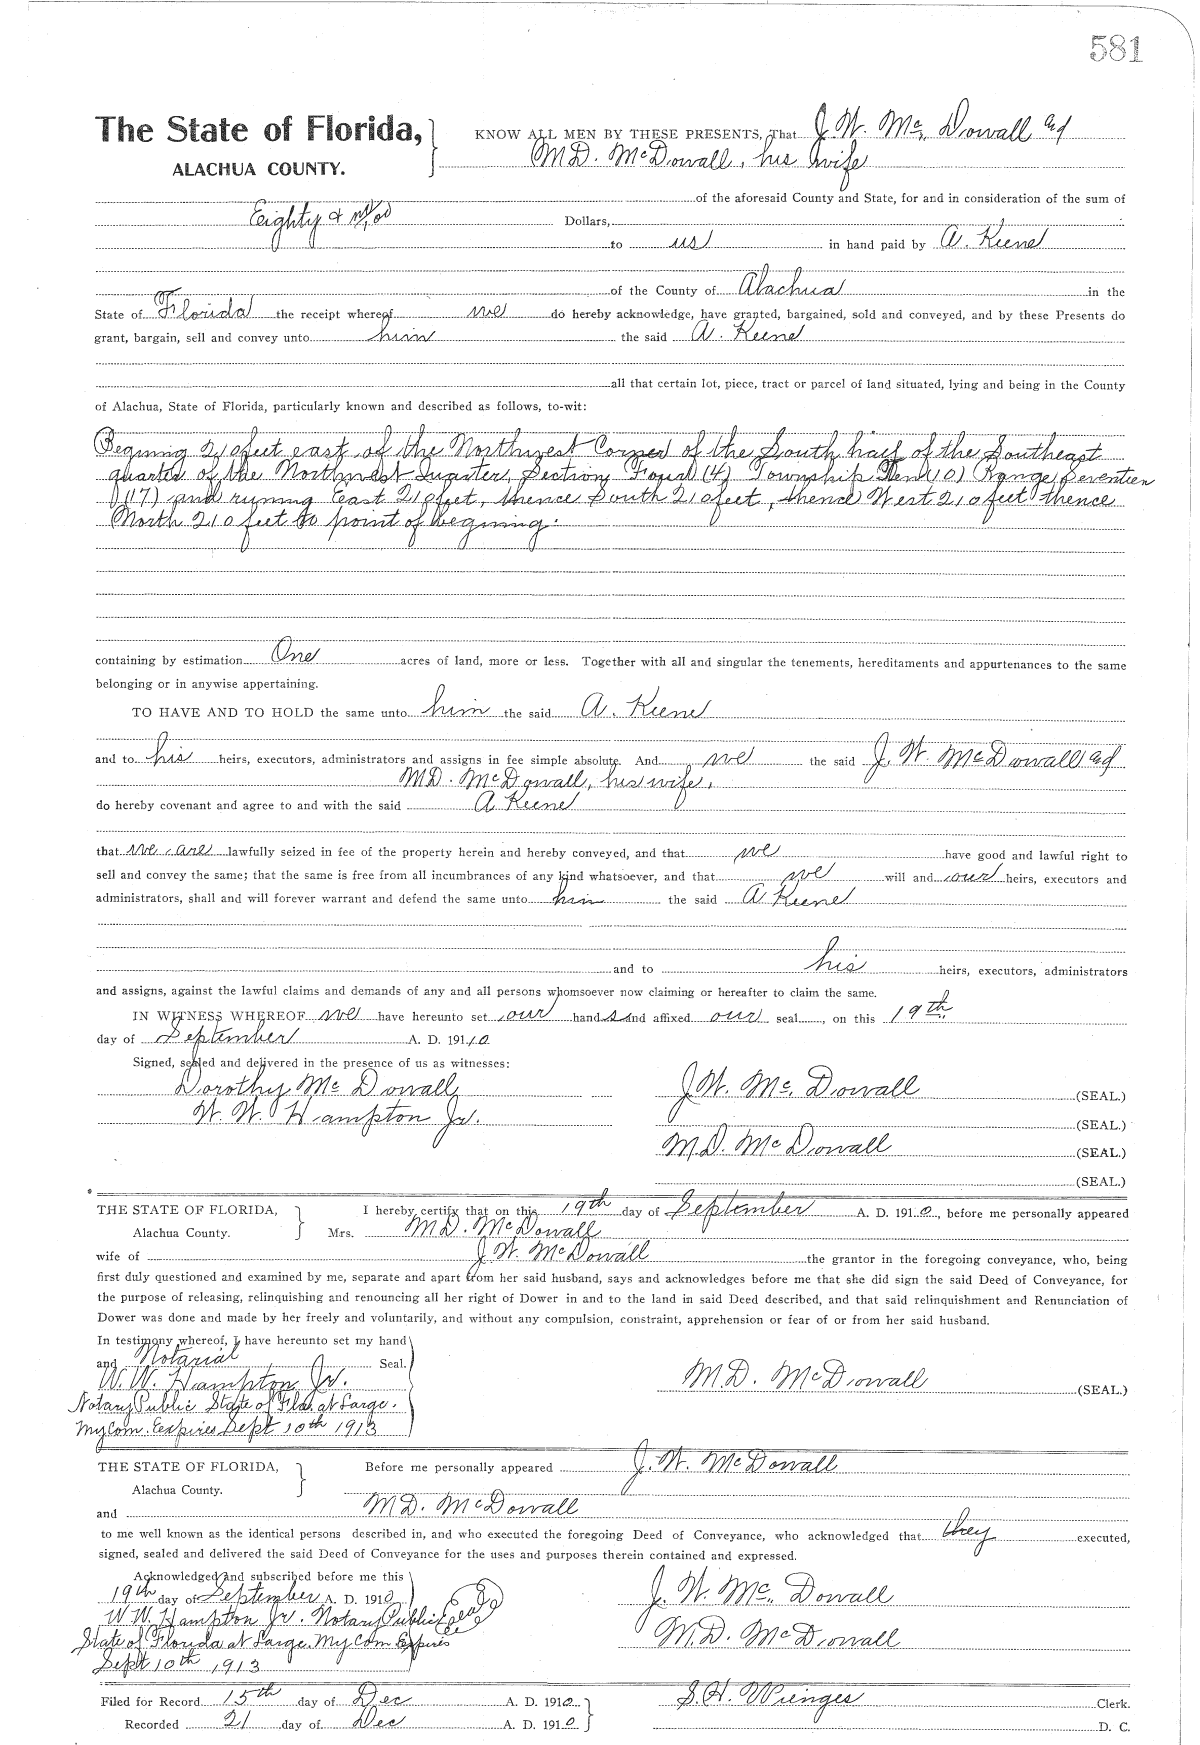 581
The State of Florida,
ALACHUA COUNTY.
KNOW ALL MEN BY THESE PRESENTS, That J. W. Mc. Dowall and
M.D. McDowall, his wife
of the aforesaid County and State, for and in consideration of the sum of
Eighty & no/00 Dollars,
to us in hand paid by A. Keene
of the County of Alachua in the
State of Florida the receipt whereof we do hereby acknowledge, have granted, bargained, sold and conveyed, and by these Presents do
grant, bargain, sell and convey unto him the said A. Keene
all that certain lot, piece, tract or parcel of land situated, lying and being in the County
of Alachua, State of Florida, particularly known and described as follows, to-wit:
Begining 210 feet east of the Northwest Corner of the South half of the Southeast
quarter of the Northwest Quarter, Section Four (4) Township Ten (10) Range Seventeen
(17) and running East 210 feet, thence South 210 feet, thence West 210 feet thence
North 210 feet to point of begining.
containing by estimation One acres of land, more or less. Together with all and singular the tenements, hereditaments and appurtenances to the same
belonging or in anywise appertaining.
TO HAVE AND TO HOLD the same unto him the said A. Keene
and to his heirs, executors, administrators and assigns in fee simple absolute. And we the said J. W. McDowall and
M.D. McDowall, his wife,
do hereby covenant and agree to and with the said A Keene
that we are lawfully seized in fee of the property herein and hereby conveyed, and that we have good and lawful right to
sell and convey the same; that the same is free from all incumbrances of any kind whatsoever, and that we will and our heirs, executors and
administrators, shall and will forever warrant and defend the same unto him the said A Keene
and to his heirs, executors, administrators
and assigns, against the lawful claims and demands of any and all persons whomsoever now claiming or hereafter to claim the same.
IN WITNESS WHEREOF we have hereunto set our hands and affixed our seal, on this 19th
day of September A. D. 1910
Signed, sealed and delivered in the presence of us as witnesses:
Dorothy McDowall
W. W. Hampton Jr.
J. W. Mc. Dowall (SEAL.)
(SEAL.)
M.D. McDowall (SEAL.)
(SEAL.)
THE STATE OF FLORIDA,
Alachua County.
I hereby certify that on this 19th day of September A. D. 1910, before me personally appeared
Mrs. M.D. McDowall
wife of J. W. McDowall the grantor in the foregoing conveyance, who, being
first duly questioned and examined by me, separate and apart from her said husband, says and acknowledges before me that she did sign the said Deed of Conveyance, for
the purpose of releasing, relinquishing and renouncing all her right of Dower in and to the land in said Deed described, and that said relinquishment and Renunciation of
Dower was done and made by her freely and voluntarily, and without any compulsion, constraint, apprehension or fear of or from her said husband.
In testimony whereof, I have hereunto set my hand
and Notarial Seal.
W. W. Hampton Jr.
Notary Public State of Fla. at Large.
My Com. Expires Sept 10th 1913
M.D. McDowall (SEAL.)
THE STATE OF FLORIDA,
Alachua County.
Before me personally appeared J. W. McDowall
and M.D. McDowall
to me well known as the identical persons described in, and who executed the foregoing Deed of Conveyance, who acknowledged that they executed,
signed, sealed and delivered the said Deed of Conveyance for the uses and purposes therein contained and expressed.
Acknowledged and subscribed before me this
19th day of September A. D. 1910
W.W. Hampton Jr. Notary Public Seal
State of Florida at Large. My Com Expires
Sept 10th 1913
J. W. Mc. Dowall
M.D. McDowall
Filed for Record 15th day of Dec A. D. 1910
Recorded 21 day of Dec A. D. 1910
S. H. Wienges Clerk.
D. C.